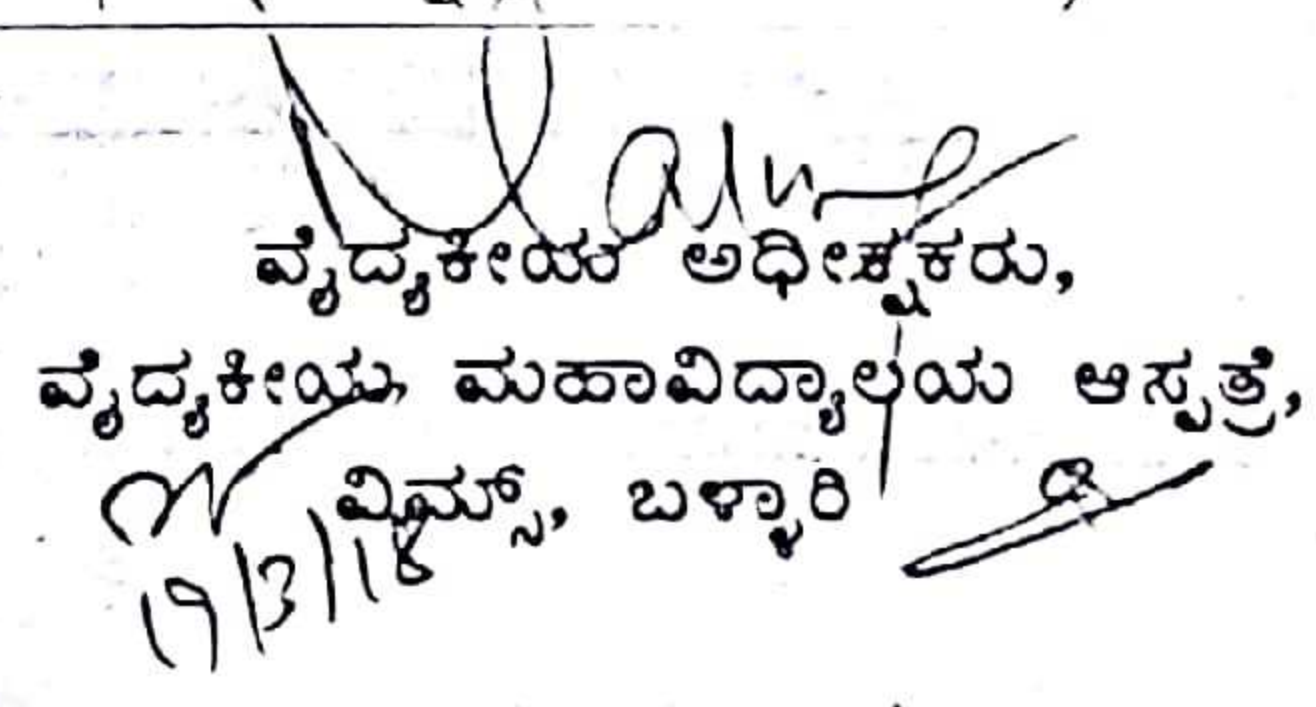 ವೈದ್ಯಕೀಯ ಅಧೀಕ್ಷಕರು,
ವೈದ್ಯಕೀಯ ಮಹಾವಿದ್ಯಾಲಯ ಆಸ್ಪತ್ರೆ,
ವಿಮ್ಸ್, ಬಳ್ಳಾರಿ
19/3/18